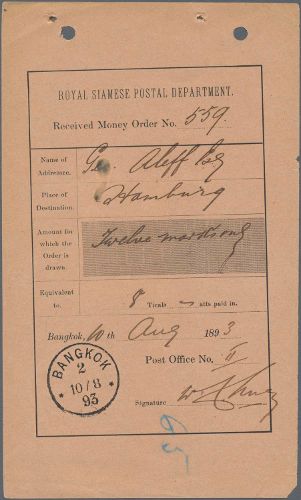 ROYAL SIAMESE POSTAL DEPARTMENT.
Received Money Order No. 559.
Name of Addressee. Geo. Aleff Esq
Place of Destination. Hamburg
Amount for which the Order is drawn. Twelve marks only
Equivalent to. 8 Ticals — atts paid in.
Bangkok, 10th Aug 1893
Post Office No. II
BANGKOK
2
10/8
93
Signature